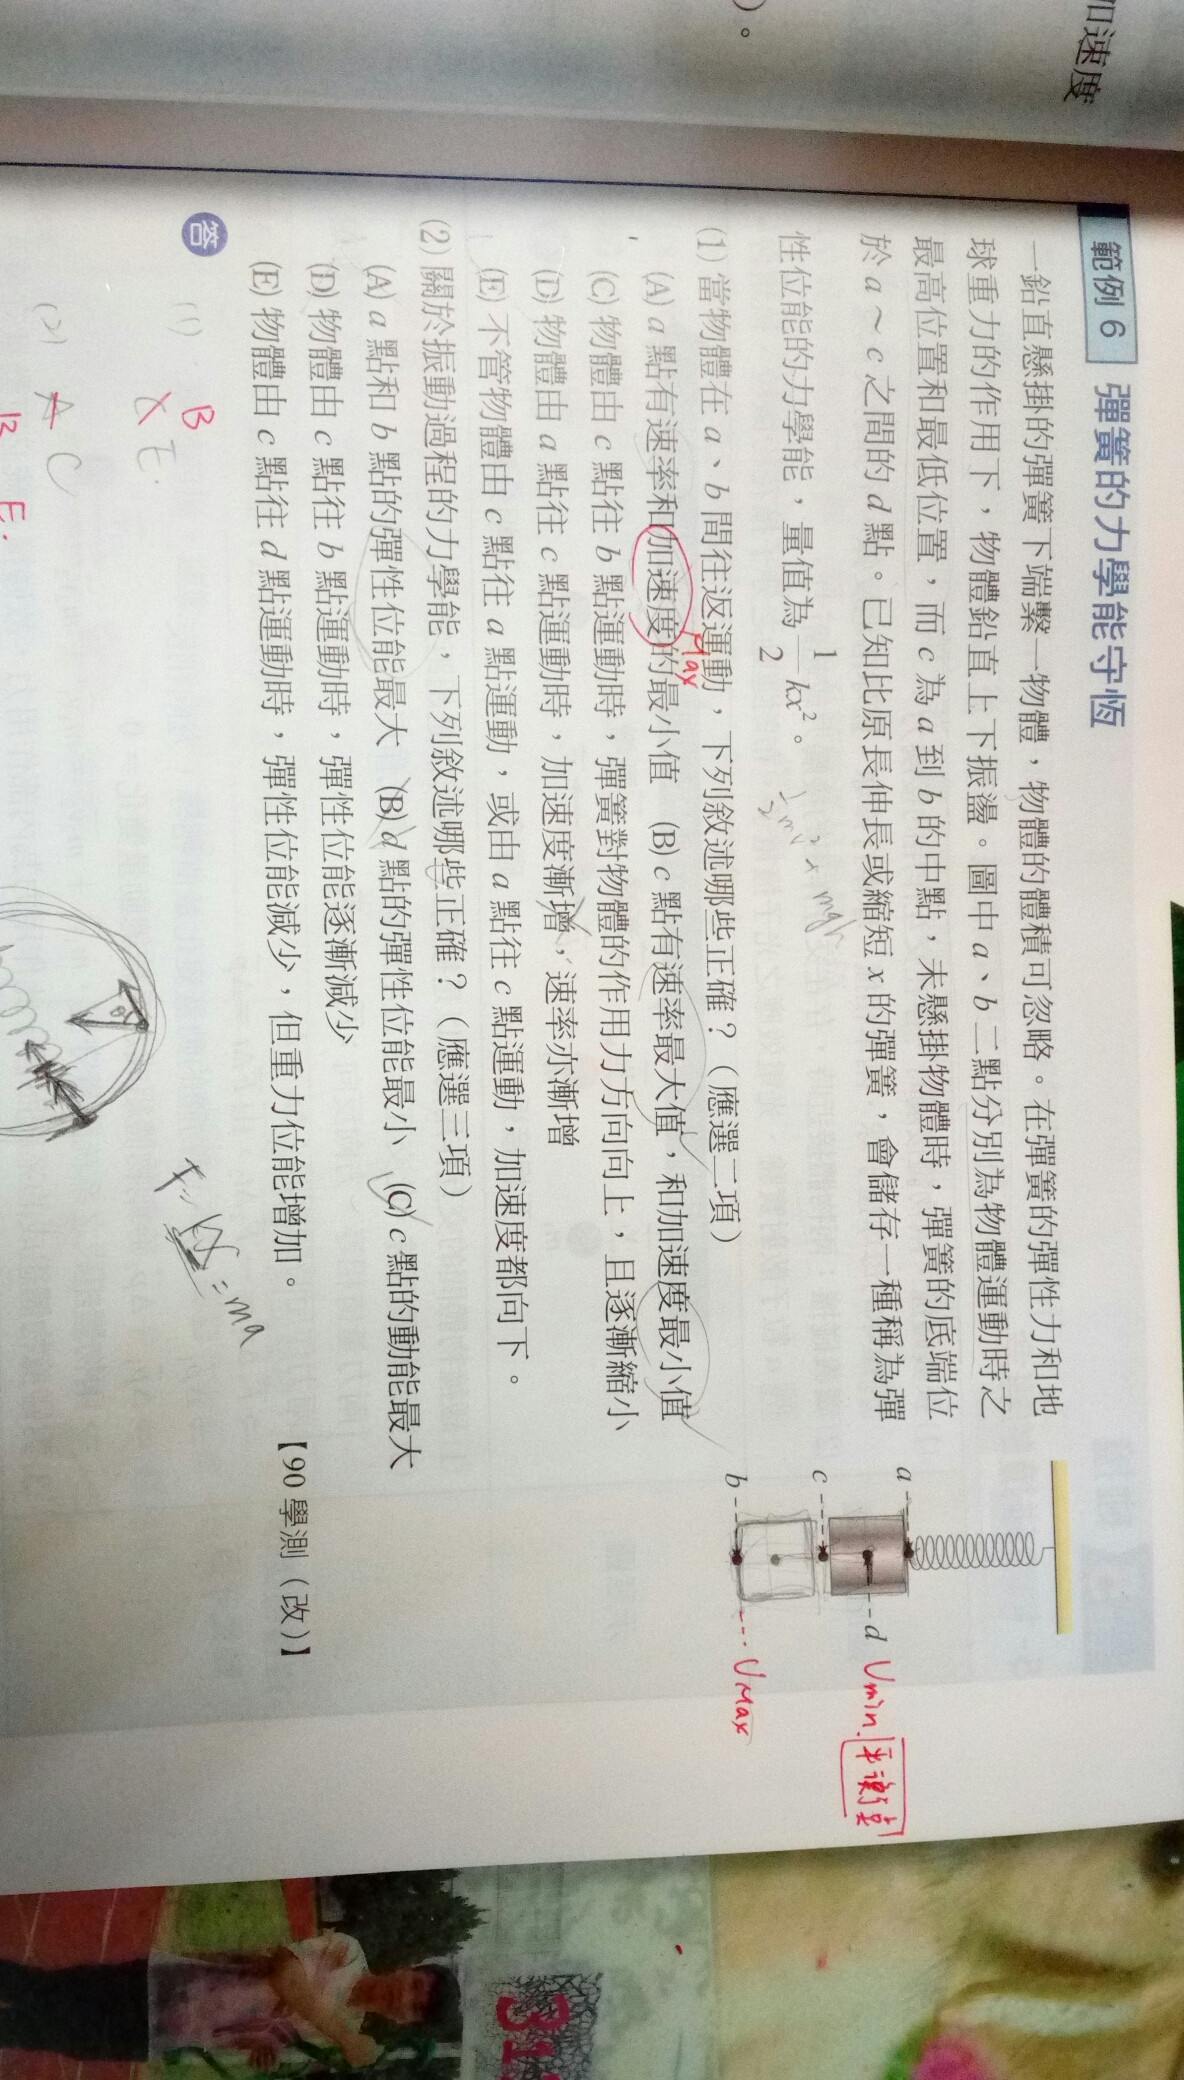 加速度
)。
範例 6 彈簧的力學能守恆
一鉛直懸掛的彈簧下端繫一物體，物體的體積可忽略。在彈簧的彈性力和地
球重力的作用下，物體鉛直上下振盪。圖中 a、b 二點分別為物體運動時之
最高位置和最低位置，而 c 為 a 到 b 的中點，未懸掛物體時，彈簧的底端位
於 a～c 之間的 d 點。已知比原長伸長或縮短 x 的彈簧，會儲存一種稱為彈
性位能的力學能，量值為 1/2 kx²。
a
c
b
d
Umin.
平衡點
UMax
(1) 當物體在 a、b 間往返運動，下列敘述哪些正確？（應選二項）
Max
(A) a 點有速率和加速度的最小值 (B) c 點有速率最大值，和加速度最小值
(C) 物體由 c 點往 b 點運動時，彈簧對物體的作用力方向向上，且逐漸縮小
(D) 物體由 a 點往 c 點運動時，加速度漸增，速率亦漸增
(E) 不管物體由 c 點往 a 點運動，或由 a 點往 c 點運動，加速度都向下。
(2) 關於振動過程的力學能，下列敘述哪些正確？（應選三項）
(A) a 點和 b 點的彈性位能最大 (B) d 點的彈性位能最小 (C) c 點的動能最大
(D) 物體由 c 點往 b 點運動時，彈性位能逐漸減少
(E) 物體由 c 點往 d 點運動時，彈性位能減少，但重力位能增加。
【90 學測（改）】
答
(1) B E.
(2) A C
B E.
F = kx = ma
31